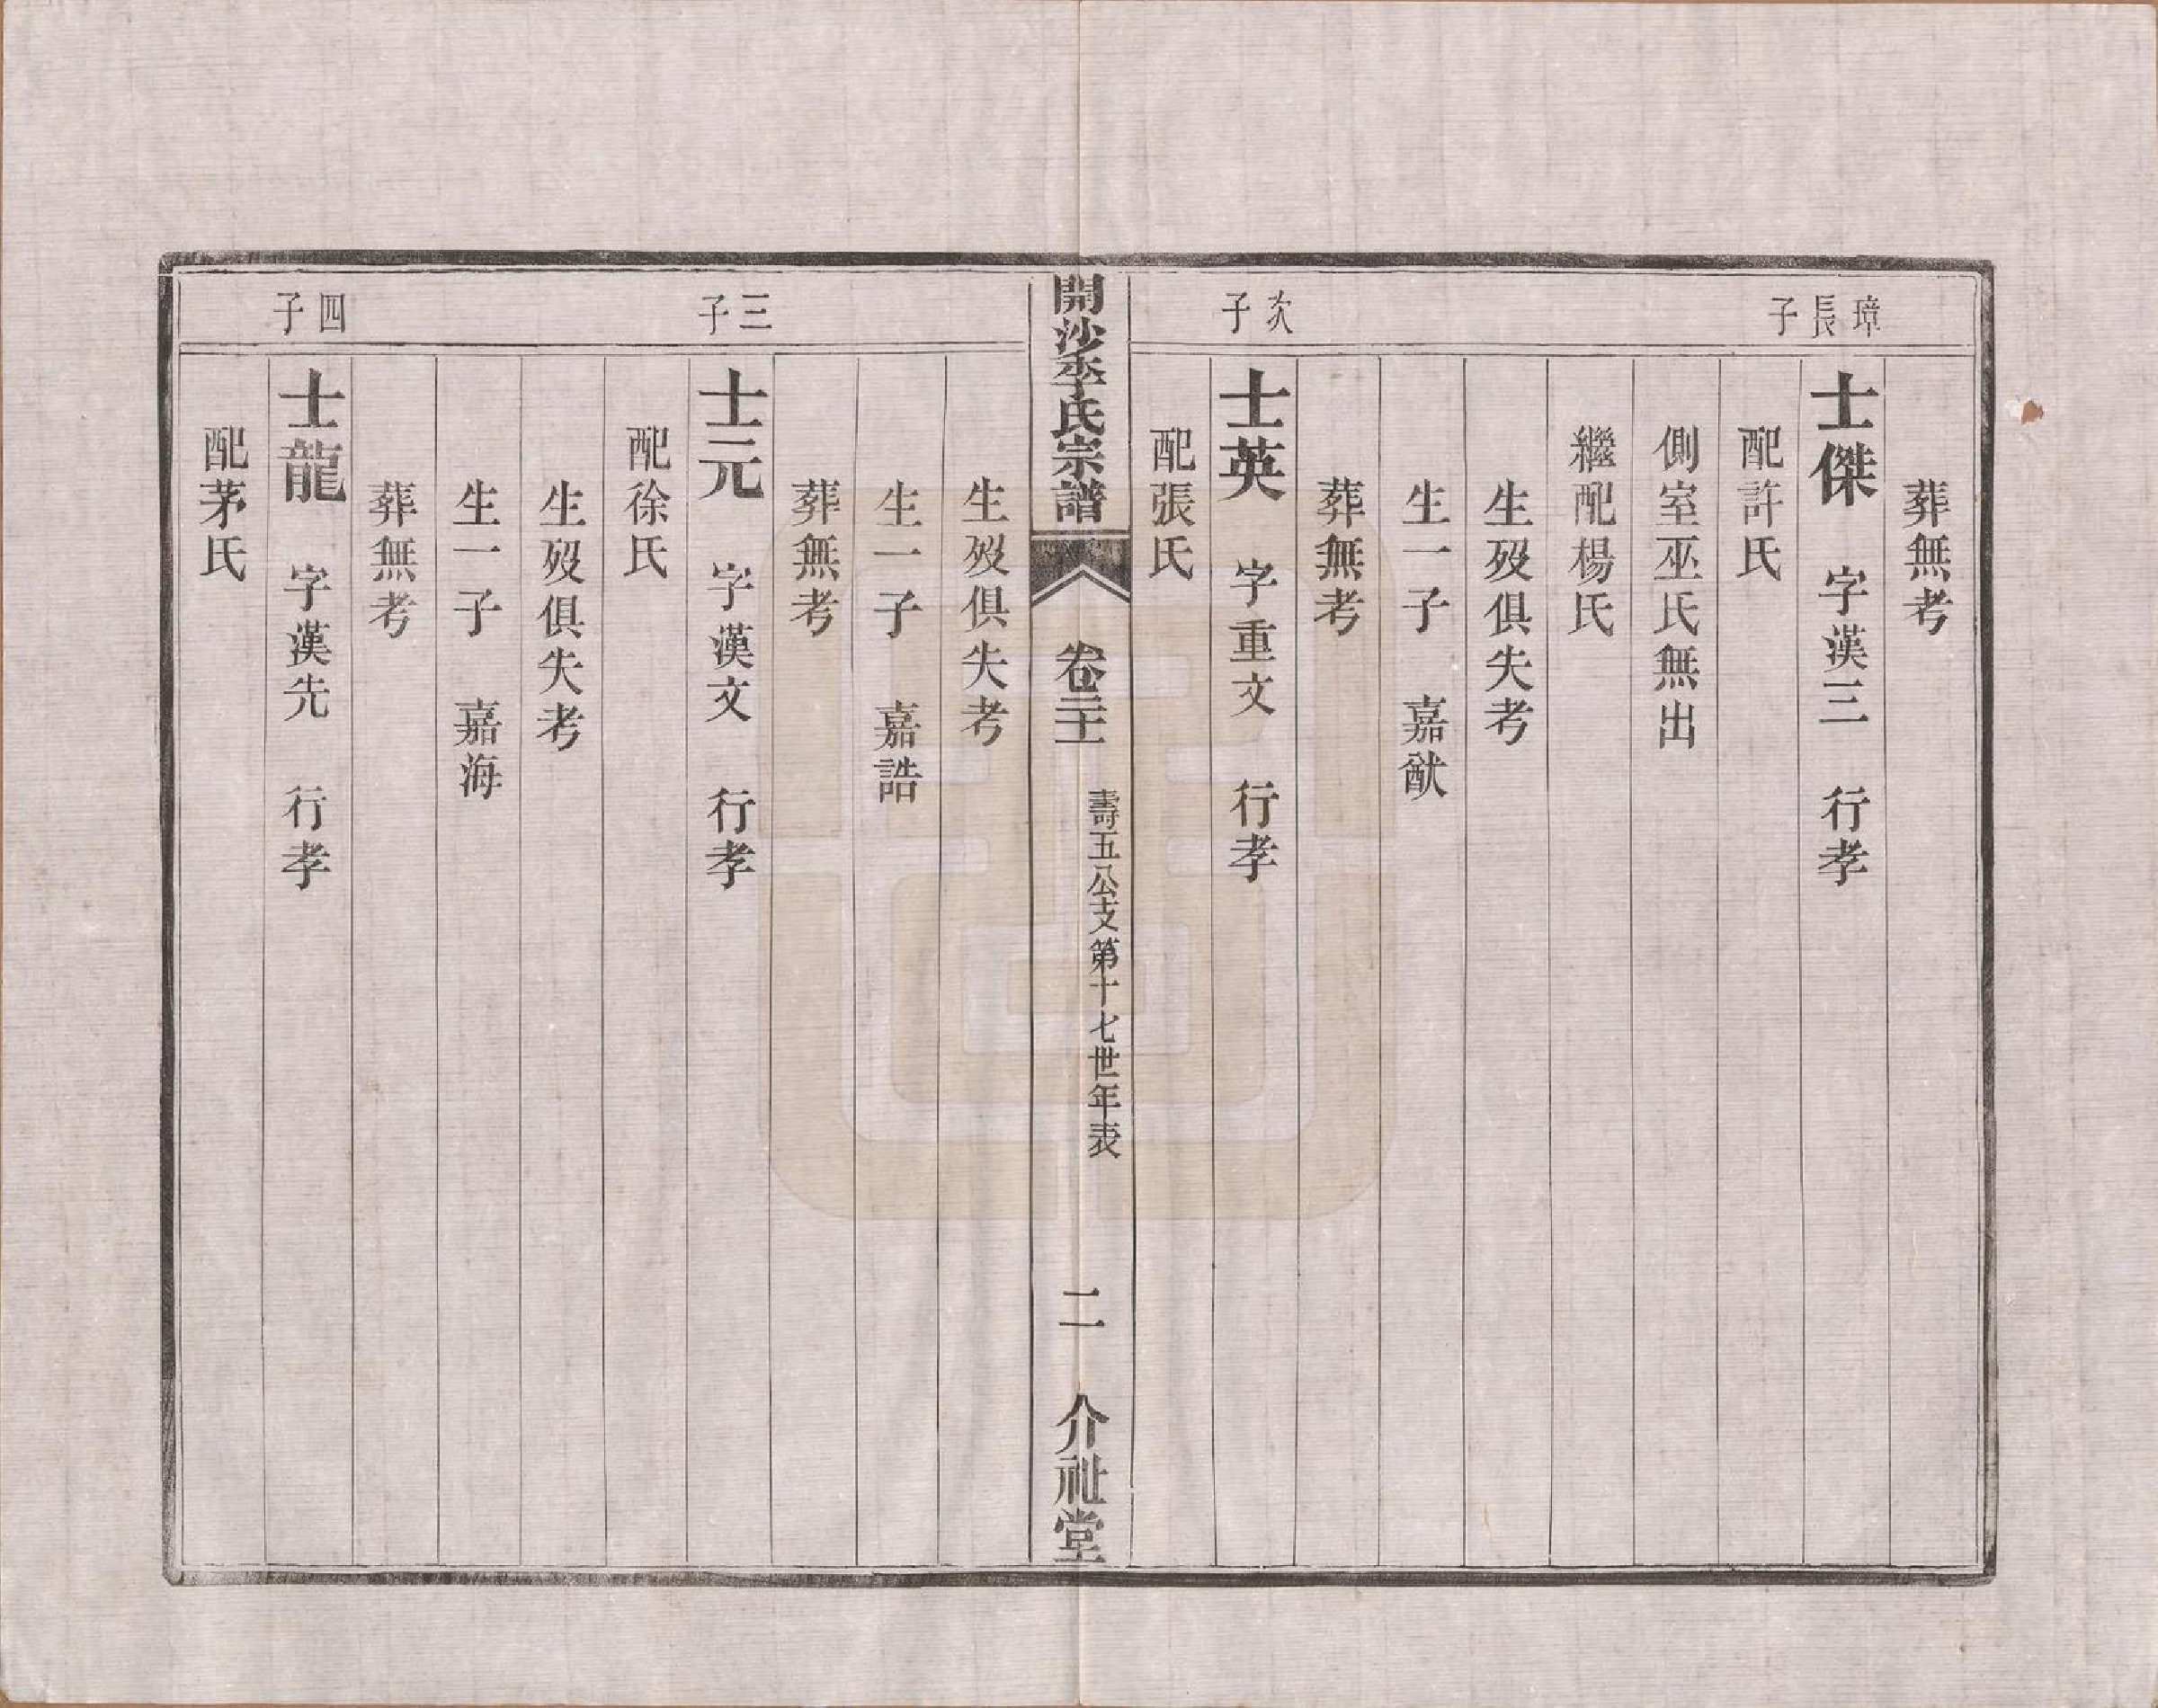 葬無考
璋長子
士傑 字漢三 行孝
配許氏
側室巫氏無出
繼配楊氏
生歿俱失考
生一子 嘉猷
葬無考
次子
士英 字重文 行孝
配張氏
開沙李氏宗譜
卷二十二
壽五八公支第十七世年表
二
介祉堂
生歿俱失考
生一子 嘉誥
葬無考
三子
士元 字漢文 行孝
配徐氏
生歿俱失考
生一子 嘉海
葬無考
四子
士龍 字漢先 行孝
配茅氏